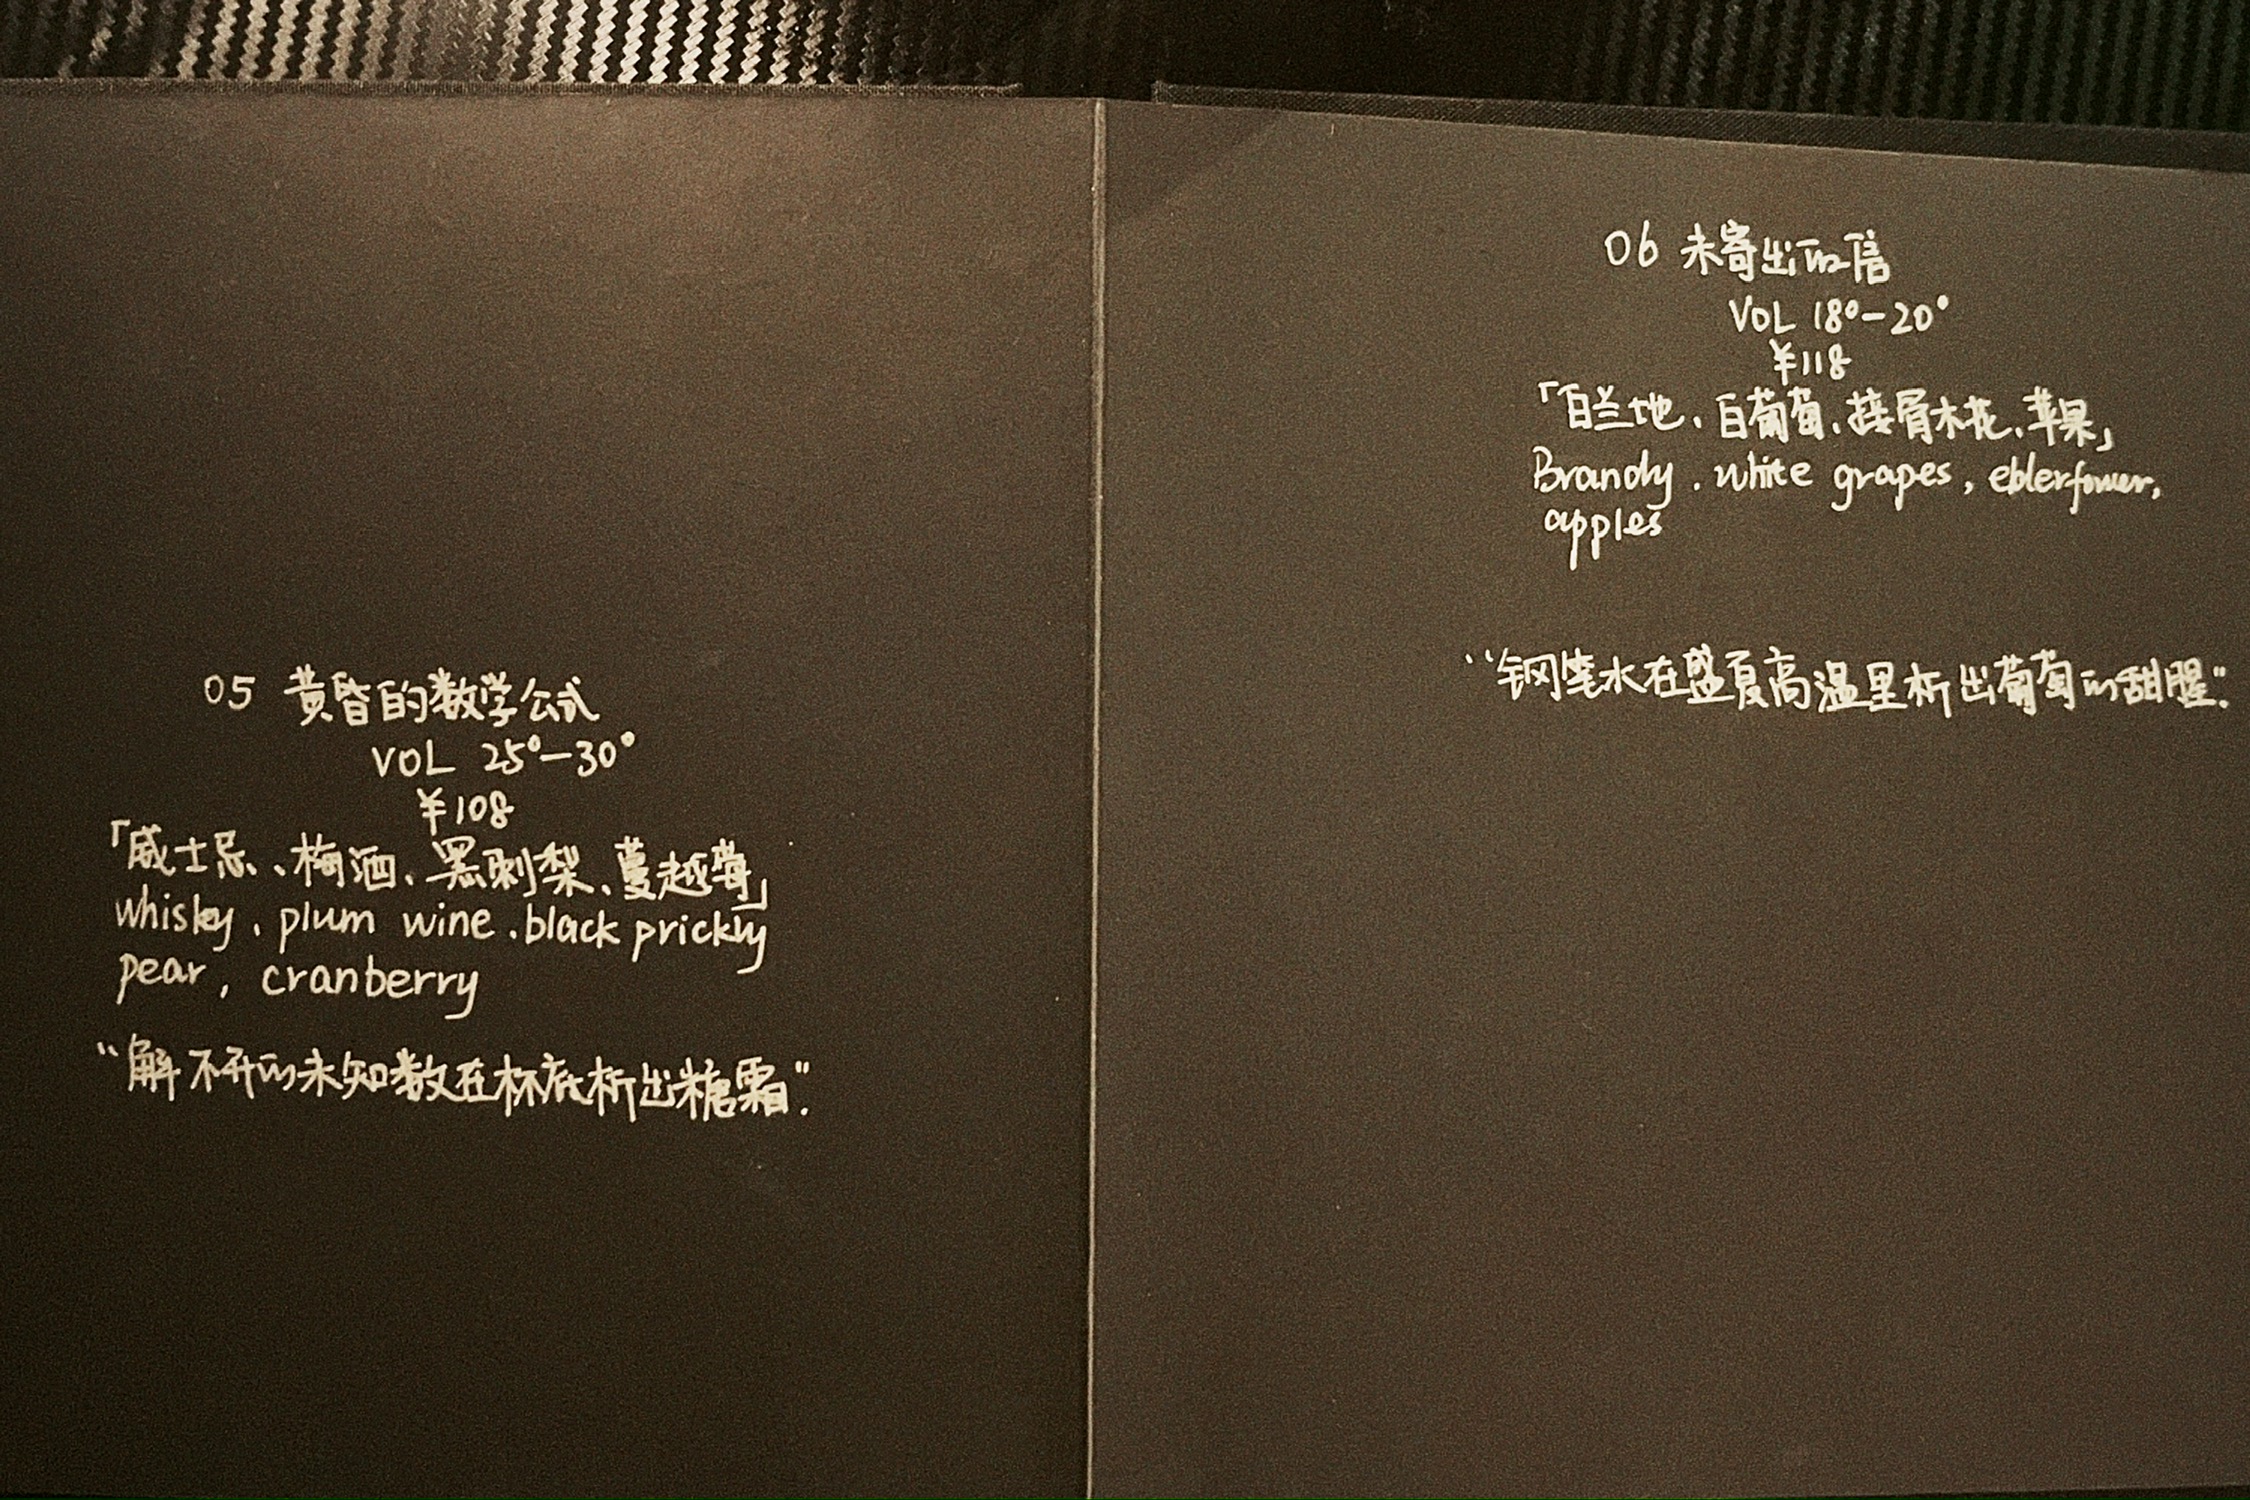 05 黄昏的数学公式
VOL 25°—30°
¥108
「威士忌、梅酒、黑刺梨、蔓越莓」
whisky, plum wine, black prickly
pear, cranberry
"解不开的未知数在杯底析出糖霜".
06 未寄出的信
VOL 18°—20°
¥118
「白兰地、白葡萄、接骨木花、苹果」
Brandy, white grapes, eblerfower,
apples
"钢笔水在盛夏高温里析出葡萄的甜腥".